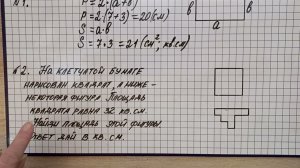 №1.
P=2·(a+b)
P=2·(7+3)=20(см)
S=a·b
S=7·3=21(см², кв.см)
в
в
a
№2. На клетчатой бумаге
нарисован квадрат, а ниже -
некоторая фигура. Площадь
квадрата равна 32 кв.см.
Найди площадь этой фигуры
ответ дай в кв.см.